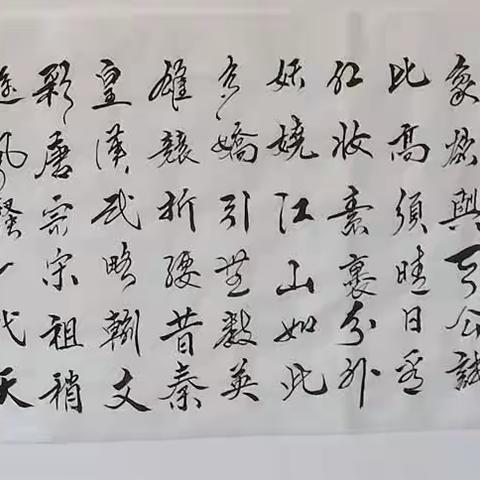 象欲與天公試
比高須晴日看
红妝素裹分外
妖嬈江山如此
多嬌引無數英
雄競折腰昔秦
皇漢武略輸文
彩唐宗宋祖稍
遜風騷一代天